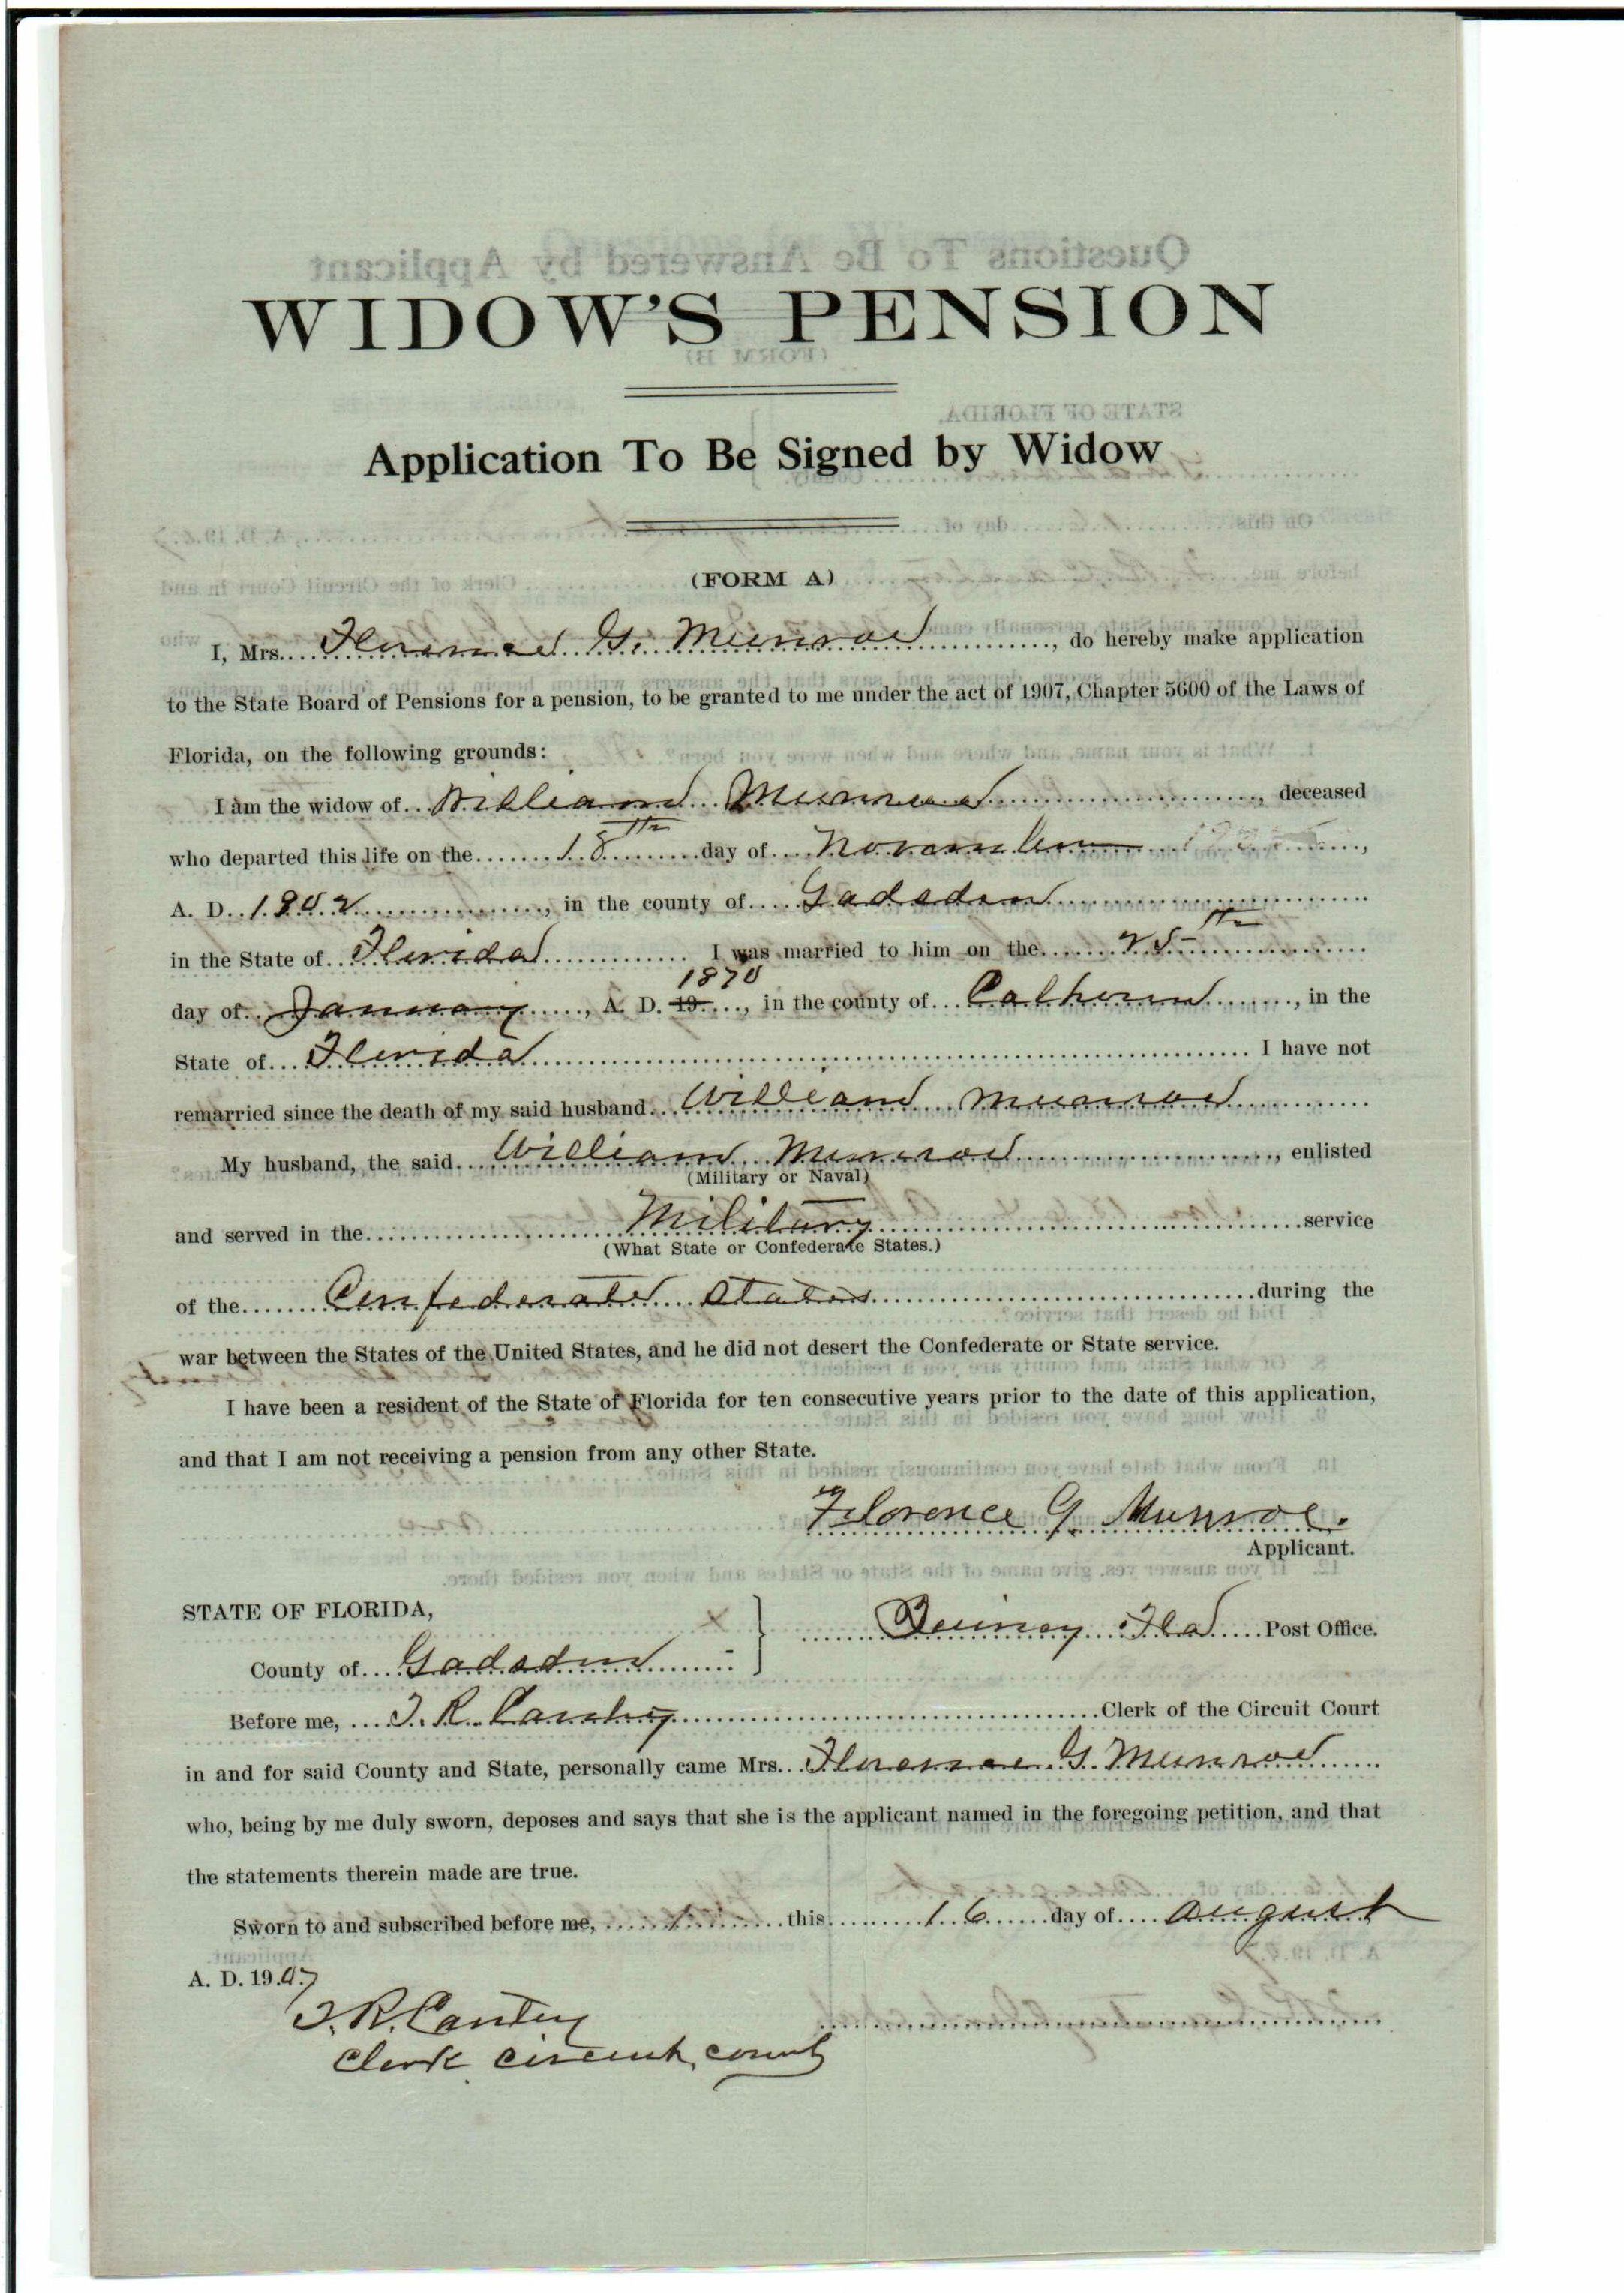 WIDOW'S PENSION
Application To Be Signed by Widow
(FORM A)
I, Mrs. Florence G. Munroe, do hereby make application
to the State Board of Pensions for a pension, to be granted to me under the act of 1907, Chapter 5600 of the Laws of
Florida, on the following grounds:
I am the widow of William Munroe, deceased
who departed this life on the 18th day of November,
A. D. 1902, in the county of Gadsden
in the State of Florida I was married to him on the 25th
1870
day of January, A. D. 19, in the county of Calhoun, in the
State of Florida I have not
remarried since the death of my said husband William Munroe
My husband, the said William Munroe, enlisted
(Military or Naval)
and served in the Military service
(What State or Confederate States.)
of the Confederate States during the
war between the States of the United States, and he did not desert the Confederate or State service.
I have been a resident of the State of Florida for ten consecutive years prior to the date of this application,
and that I am not receiving a pension from any other State.
Florence G. Munroe.
Applicant.
STATE OF FLORIDA,
Quincy Fla Post Office.
County of Gadsden
Before me, T. R. Cantey Clerk of the Circuit Court
in and for said County and State, personally came Mrs. Florence G. Munroe
who, being by me duly sworn, deposes and says that she is the applicant named in the foregoing petition, and that
the statements therein made are true.
Sworn to and subscribed before me, this 16 day of August
A. D. 1907
T. R. Cantey
Clerk Circuit Court